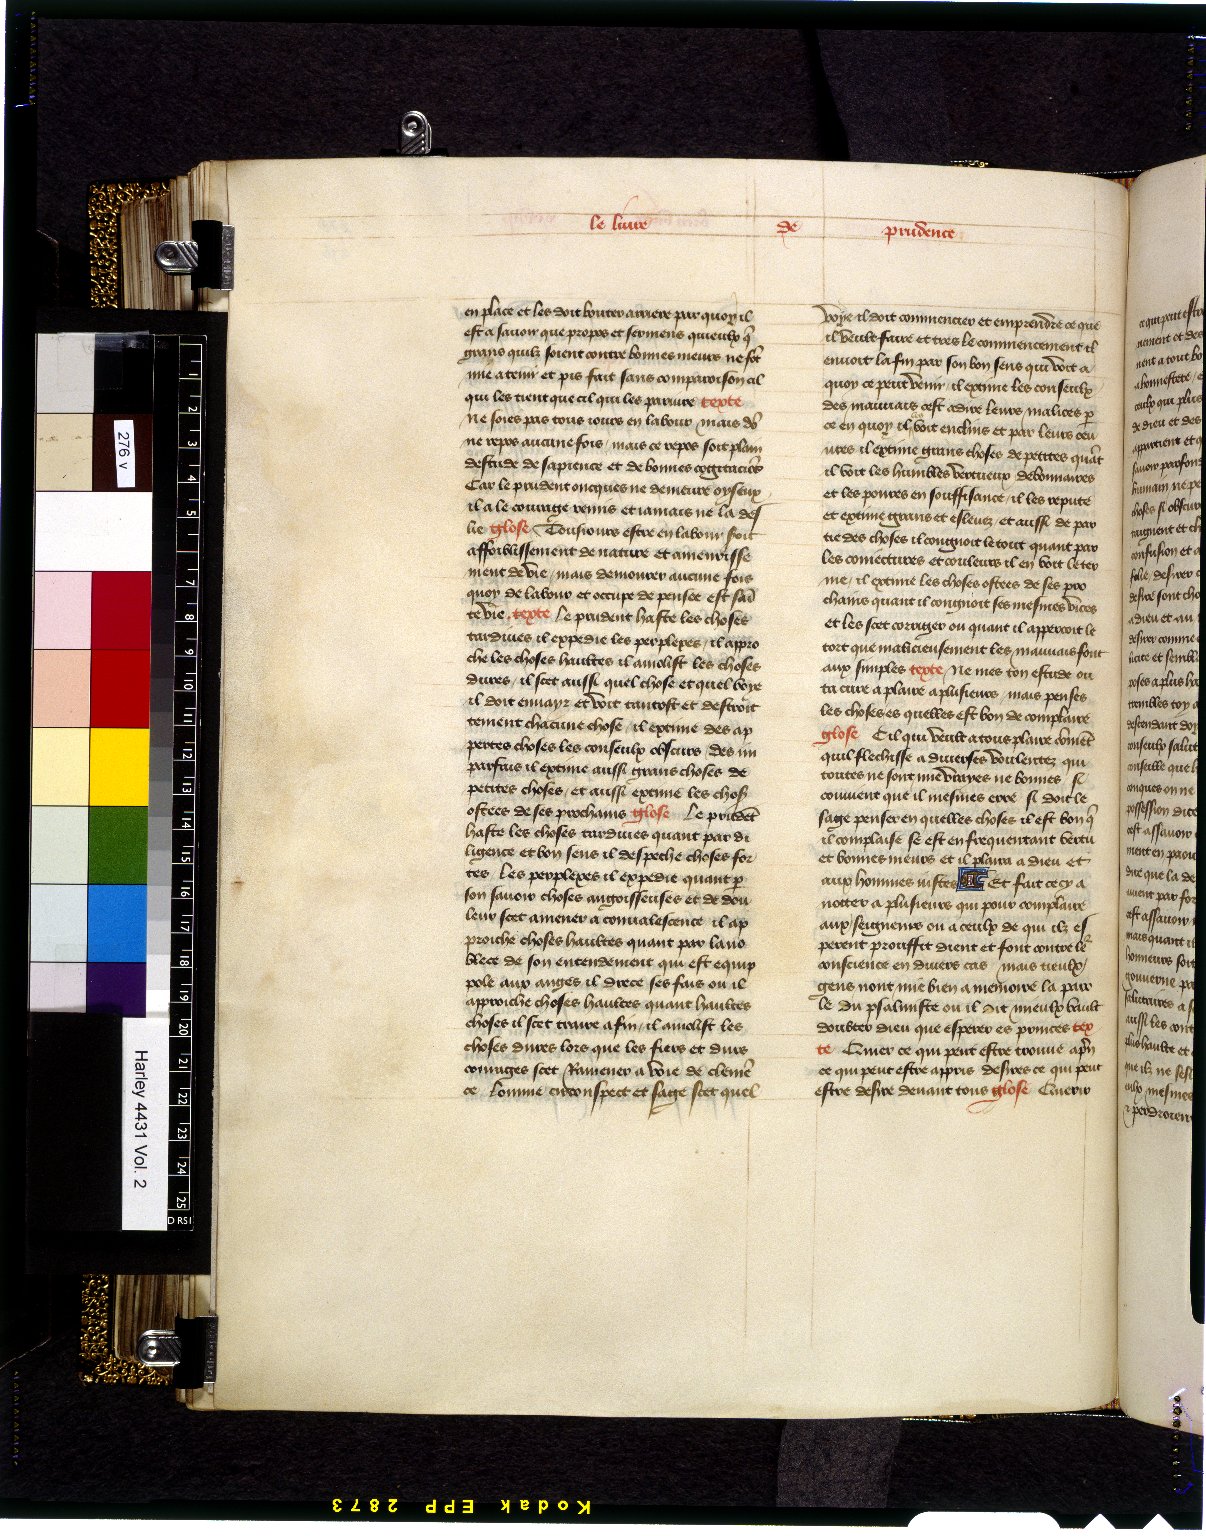 le liure de prudence
en place et les doit bouter arriere par quoy il
est a sauoir que propos et sermens quieulx q̄
grans quilz soient contre bonnes meurs ne sōt
mie a tenir et pis fait sans comparoison cil
qui les tient que cil qui les pariure texte
Ne soies pas tous iours en labour mais
ne repos aucune fois / mais ce repos soit plain
destude de sapience et de bonnes cogitacions
Car le prudent oncques ne demeure oyseux
il a le courage remis et iamais ne la des
lie glose Tousiours estre en labour soit
affoiblissement de nature et amenrisse
ment de vie / mais demourer aucune fois
quoy de labour et occupe de pensee est
te vie texte Le prudent haste les choses
tardiues il expedie les perplexes / il appro
che les choses haultes il amolist les choses
dures / il scet aussi quel chose et quel voye
il doit enuayr et voit tantost et
tement chacune chose / il extime des ap
pertes choses les conseulx obscurs des im
parfais il extime aussi grans choses de
petites choses / et aussi extime les chos
ostees de ses prochains glose Le prudēt
haste les choses tardiues quant par di
ligence et bon sens il despeche choses for
tes Les perplexes il expedie quant p
son sauoir choses angoisseuses et de dou
leur scet amener a conualescence il ap
proiche choses haultes quant par lano
blece de son entendement qui est equip
pole aux anges il drece ses fais ou il
approiche choses haultes quant haultes
choses il scet traire a fin / il amolist les
choses dures lors que les fiers et durs
courages scet Ramener a voie de clemē
ce Lomme circonspect et sage scet quel
voye il doit commencier et emprendre ce que
il veult faire et tres le commencement il
enuoit la fin par son bon sens qui voit a
quoy ce peut venir / il extime les conseulx
des mauuais cest adire leurs malices p
ce en quoy il voit enclins et par leurs oeu
ures il extime grans choses de petites quāt
il voit les humbles vertueux debonnaires
et les poures en souffisance / il les repute
et extime grans et esleuez / et aussi de par
tie des choses il congnoit le tout quant par
les coniectures et couleurs il en voit le ter
me / il extime les choses ostees de ses pro
chains quant il congnoit ses mesmes vices
et les scet corriger ou quant il appercoit le
tort que malicieusement les mauuais font
aux simples texte Ne mes ton estude ou
ta cure a plaire a plusieurs / mais penses
les choses es quelles est bon de complaire
glose Cil qui veult a tous plaire cōuiēt
quil flechisse a diuerses voulentez qui
toutes ne sont mie vrayes ne bonnes / si
conuient que il mesmes erre si doit le
sage penser en quelles choses il est bon q̄
il complaise se est en frequentant vertu
et bonnes meurs et il plaira a dieu et
aux hommes iustes Et fait cecy a
notter a plusieurs qui pour complaire
aux seigneurs ou a ceulx de qui ilz es
perent prouffit dient et font contre le
conscience en diuers cas / mais tieulx
gens nont mie bien a memoire la paro
le du psalmiste ou il dit mieulx vault
doubter dieu que esperer es princes tex
te Quier ce qui peut estre trouue
ce qui peut estre appris desires ce qui peut
estre desire deuant tous glose Querir
276 v
Harley 4431 Vol. 2
1
2
3
4
5
7
8
9
10
11
12
13
14
15
16
17
18
19
20
21
22
23
24
25
Kodak EPP 2873